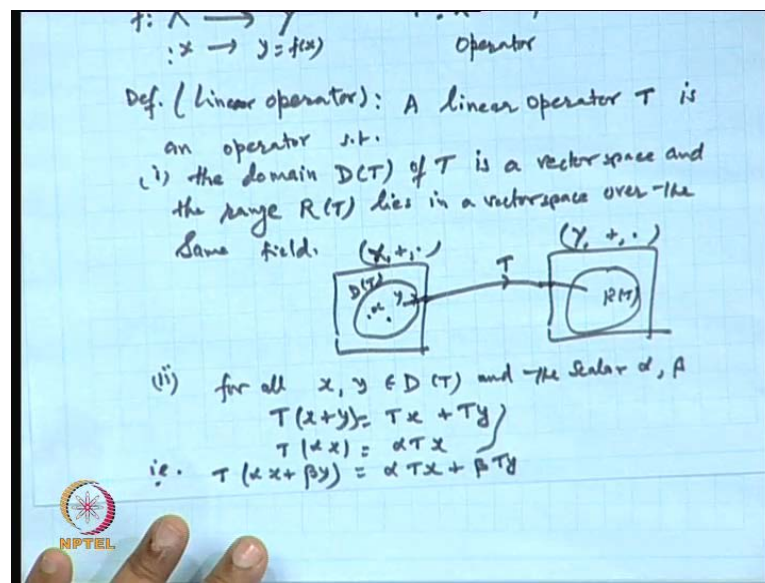 f: X → Y
: x → y = f(x) Operator
Def. (Linear operator): A linear operator T is
an operator s.t.
(i) the domain D(T) of T is a vector space and
the range R(T) lies in a vector space over the
Same field. (X, +, ·) (Y, +, ·)
T
D(T) x y R(T)
(ii) for all x, y ∈ D(T) and the Scalar α, β
T(x+y) = Tx + Ty
T(αx) = αTx
i.e. T(αx + βy) = αTx + βTy
NPTEL